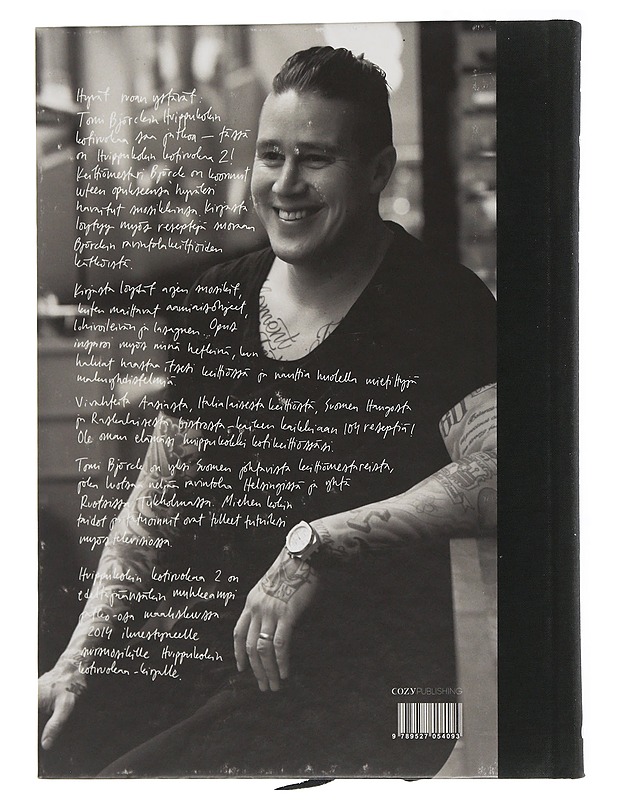 Hyvät ruoan ystävät:
Tomi Björckin Huippukokin
kotiruokaa saa jatkoa – tässä
on Huippukokin kotiruokaa 2!
Keittiömestari Björck on koonnut
uuteen opukseensa hyväksi
havaitut suosikkinsa. Kirjasta
löytyy myös reseptejä suoraan
Björckin ravintolakeittiöiden
kätköistä.
Kirjasta löydät arjen suosikit,
kuten maittavat aamiaisohjeet,
lohivoileivän ja lasagnen. Opus
inspiroi myös niinä hetkinä, kun
haluat haastaa itsesi keittiössä ja nauttia huolella mietittyjä
makuyhdistelmiä.
Vivahteita Aasiasta, Italialaisesta keittiöstä, Suomen Hangosta
ja Ranskalaisesta bistrosta – kaiken kaikkiaan 104 reseptiä!
Ole oman elämäsi huippukokki kotikeittiössäsi.
Tomi Björck on yksi Suomen johtavista keittiömestareista,
joka luotsaa neljää ravintolaa Helsingissä ja yhtä
Ruotsissa, Tukholmassa. Miehen kokin
taidot ja tatuoinnit ovat tulleet tutuiksi
myös televisiossa.
Huippukokin kotiruokaa 2 on
edeltäjäänsäkin muhkeampi
jatko-osa maaliskuussa
2014 ilmestyneelle
suursuosikille Huippukokin
kotiruokaa -kirjalle.
COZY PUBLISHING
9 789527 054093